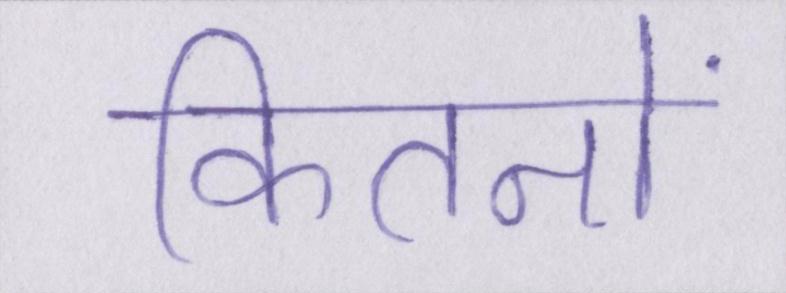 कितनों